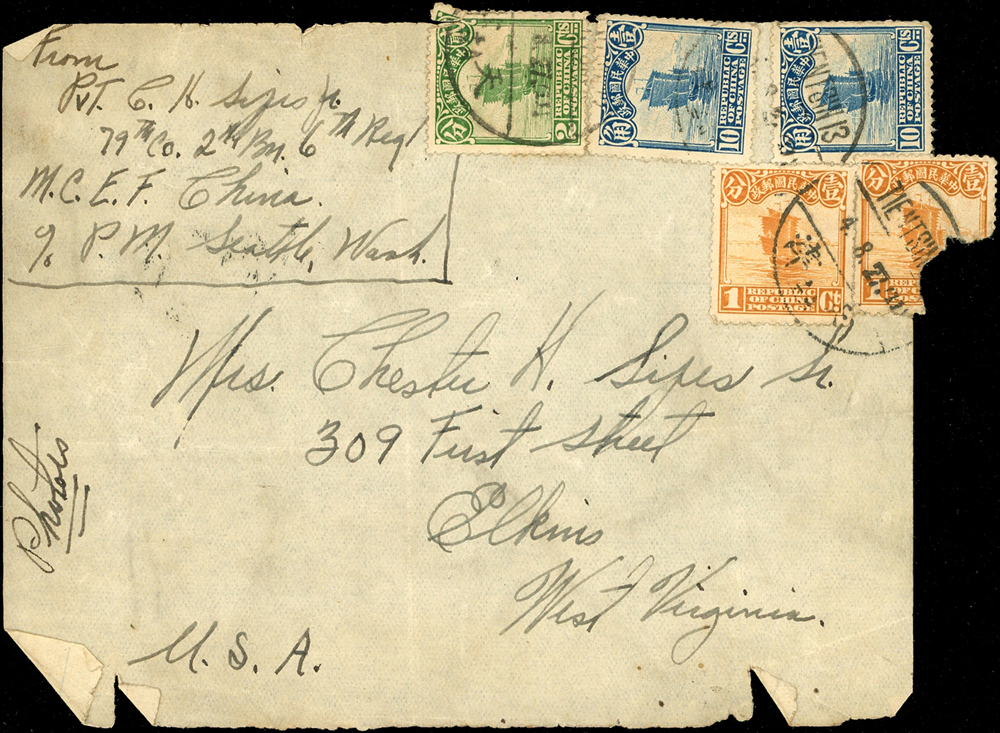 From
Pvt. C. H. Sipes Jr.
79th Co. 2nd Bn. 6th Regt
M.C.E.F. China.
% P.M. Seattle, Wash.
Mrs. Chester H. Sipes Sr.
309 First Street
Elkins
West Virginia.
U.S.A.
Photos
中華民國郵政
分
2 Cts
壹 中華民國郵政 角
10 Cts
REPUBLIC
OF CHINA
POSTAGE
壹 中華民國郵政 角
10 Cts
REPUBLIC
OF CHINA
POSTAGE
壹 中華民國郵政 分
1 Ct
REPUBLIC
OF CHINA
POSTAGE
壹 中華民國郵政 分
TIENTSIN 13
天
TIENTSIN
4.8.27
津